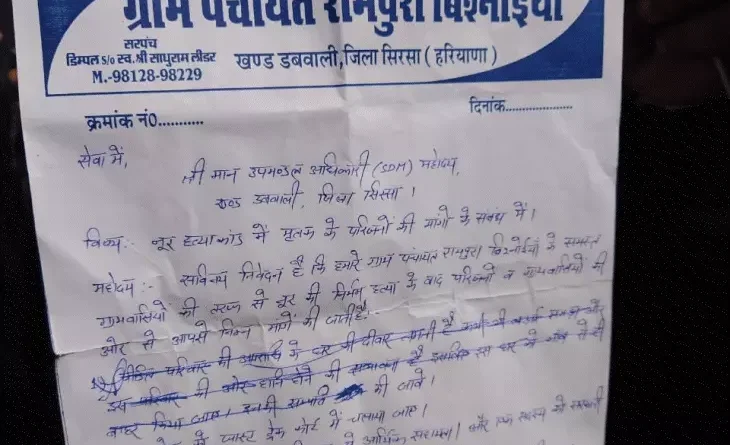 ग्राम पंचायत रामपुरा बिश्नोईयां
सरपंच
डिम्पल S/o स्व. श्री साधुराम लीडर
M.-98128-98229
खण्ड डबवाली, जिला सिरसा ( हरियाणा )
क्रमांक नं0...........
दिनांक....................
सेवा में,
श्री मान उपमण्डल अधिकारी (SDM) महोदय,
खण्ड डबवाली, जिला सिरसा ।
विषय:- नूर हत्याकांड में मृतक के परिजनों की मांगों के संबंध में ।
महोदय :- सविनय निवेदन है कि हमारे ग्राम पंचायत रामपुरा बिश्नोईयां के समस्त
ग्रामवासियों की तरफ से नूर की निर्मम हत्या के बाद परिजनों व ग्रामवासियों की
ओर से आपसे निम्न मांगें की जाती हैं:-
पीड़ित परिवार की के घर की दीवार लगती है
इस परिवार की ओर हानि होने की सम्भावना है इसलिए इस घर को गांव से ही
बाहर किया जाए । इनकी सम्पति की जावे ।
फास्ट ट्रैक कोर्ट में चलाया जाए ।
आर्थिक सहायता और एक सदस्य को सरकारी